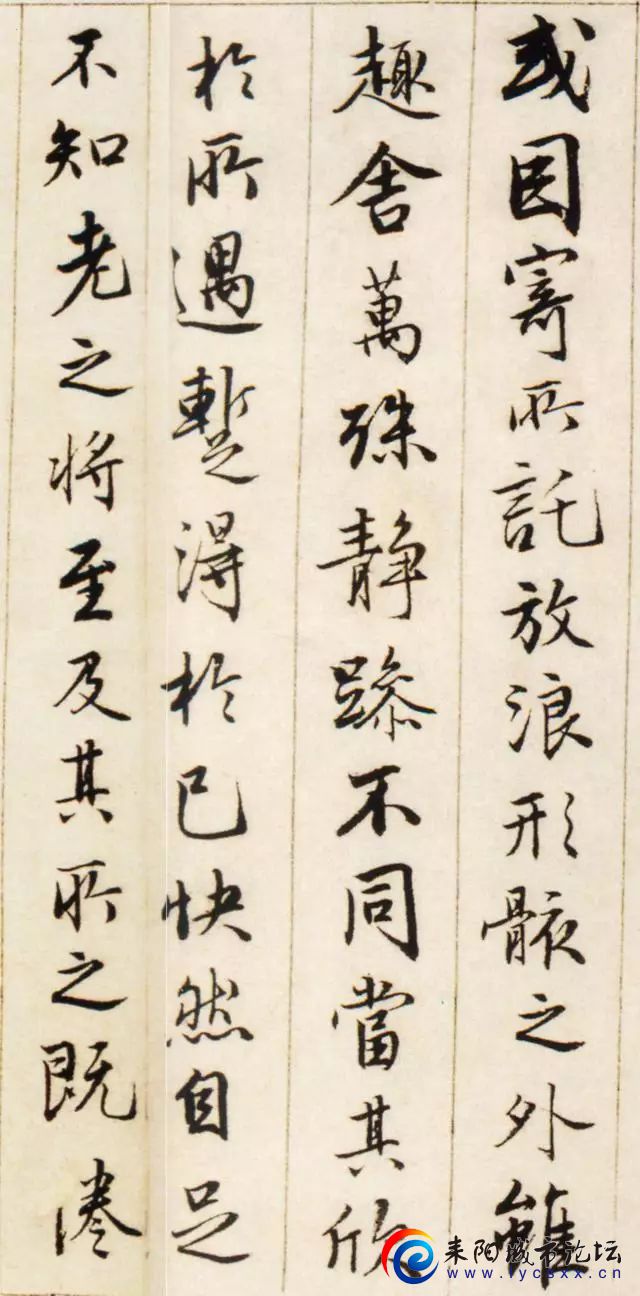 或因寄所託放浪形骸之外雖
趣舍萬殊静躁不同當其欣
於所遇蹔得於己快然自足
不知老之将至及其所之既惓
耒阳城市论坛
www.lycsxx.cn